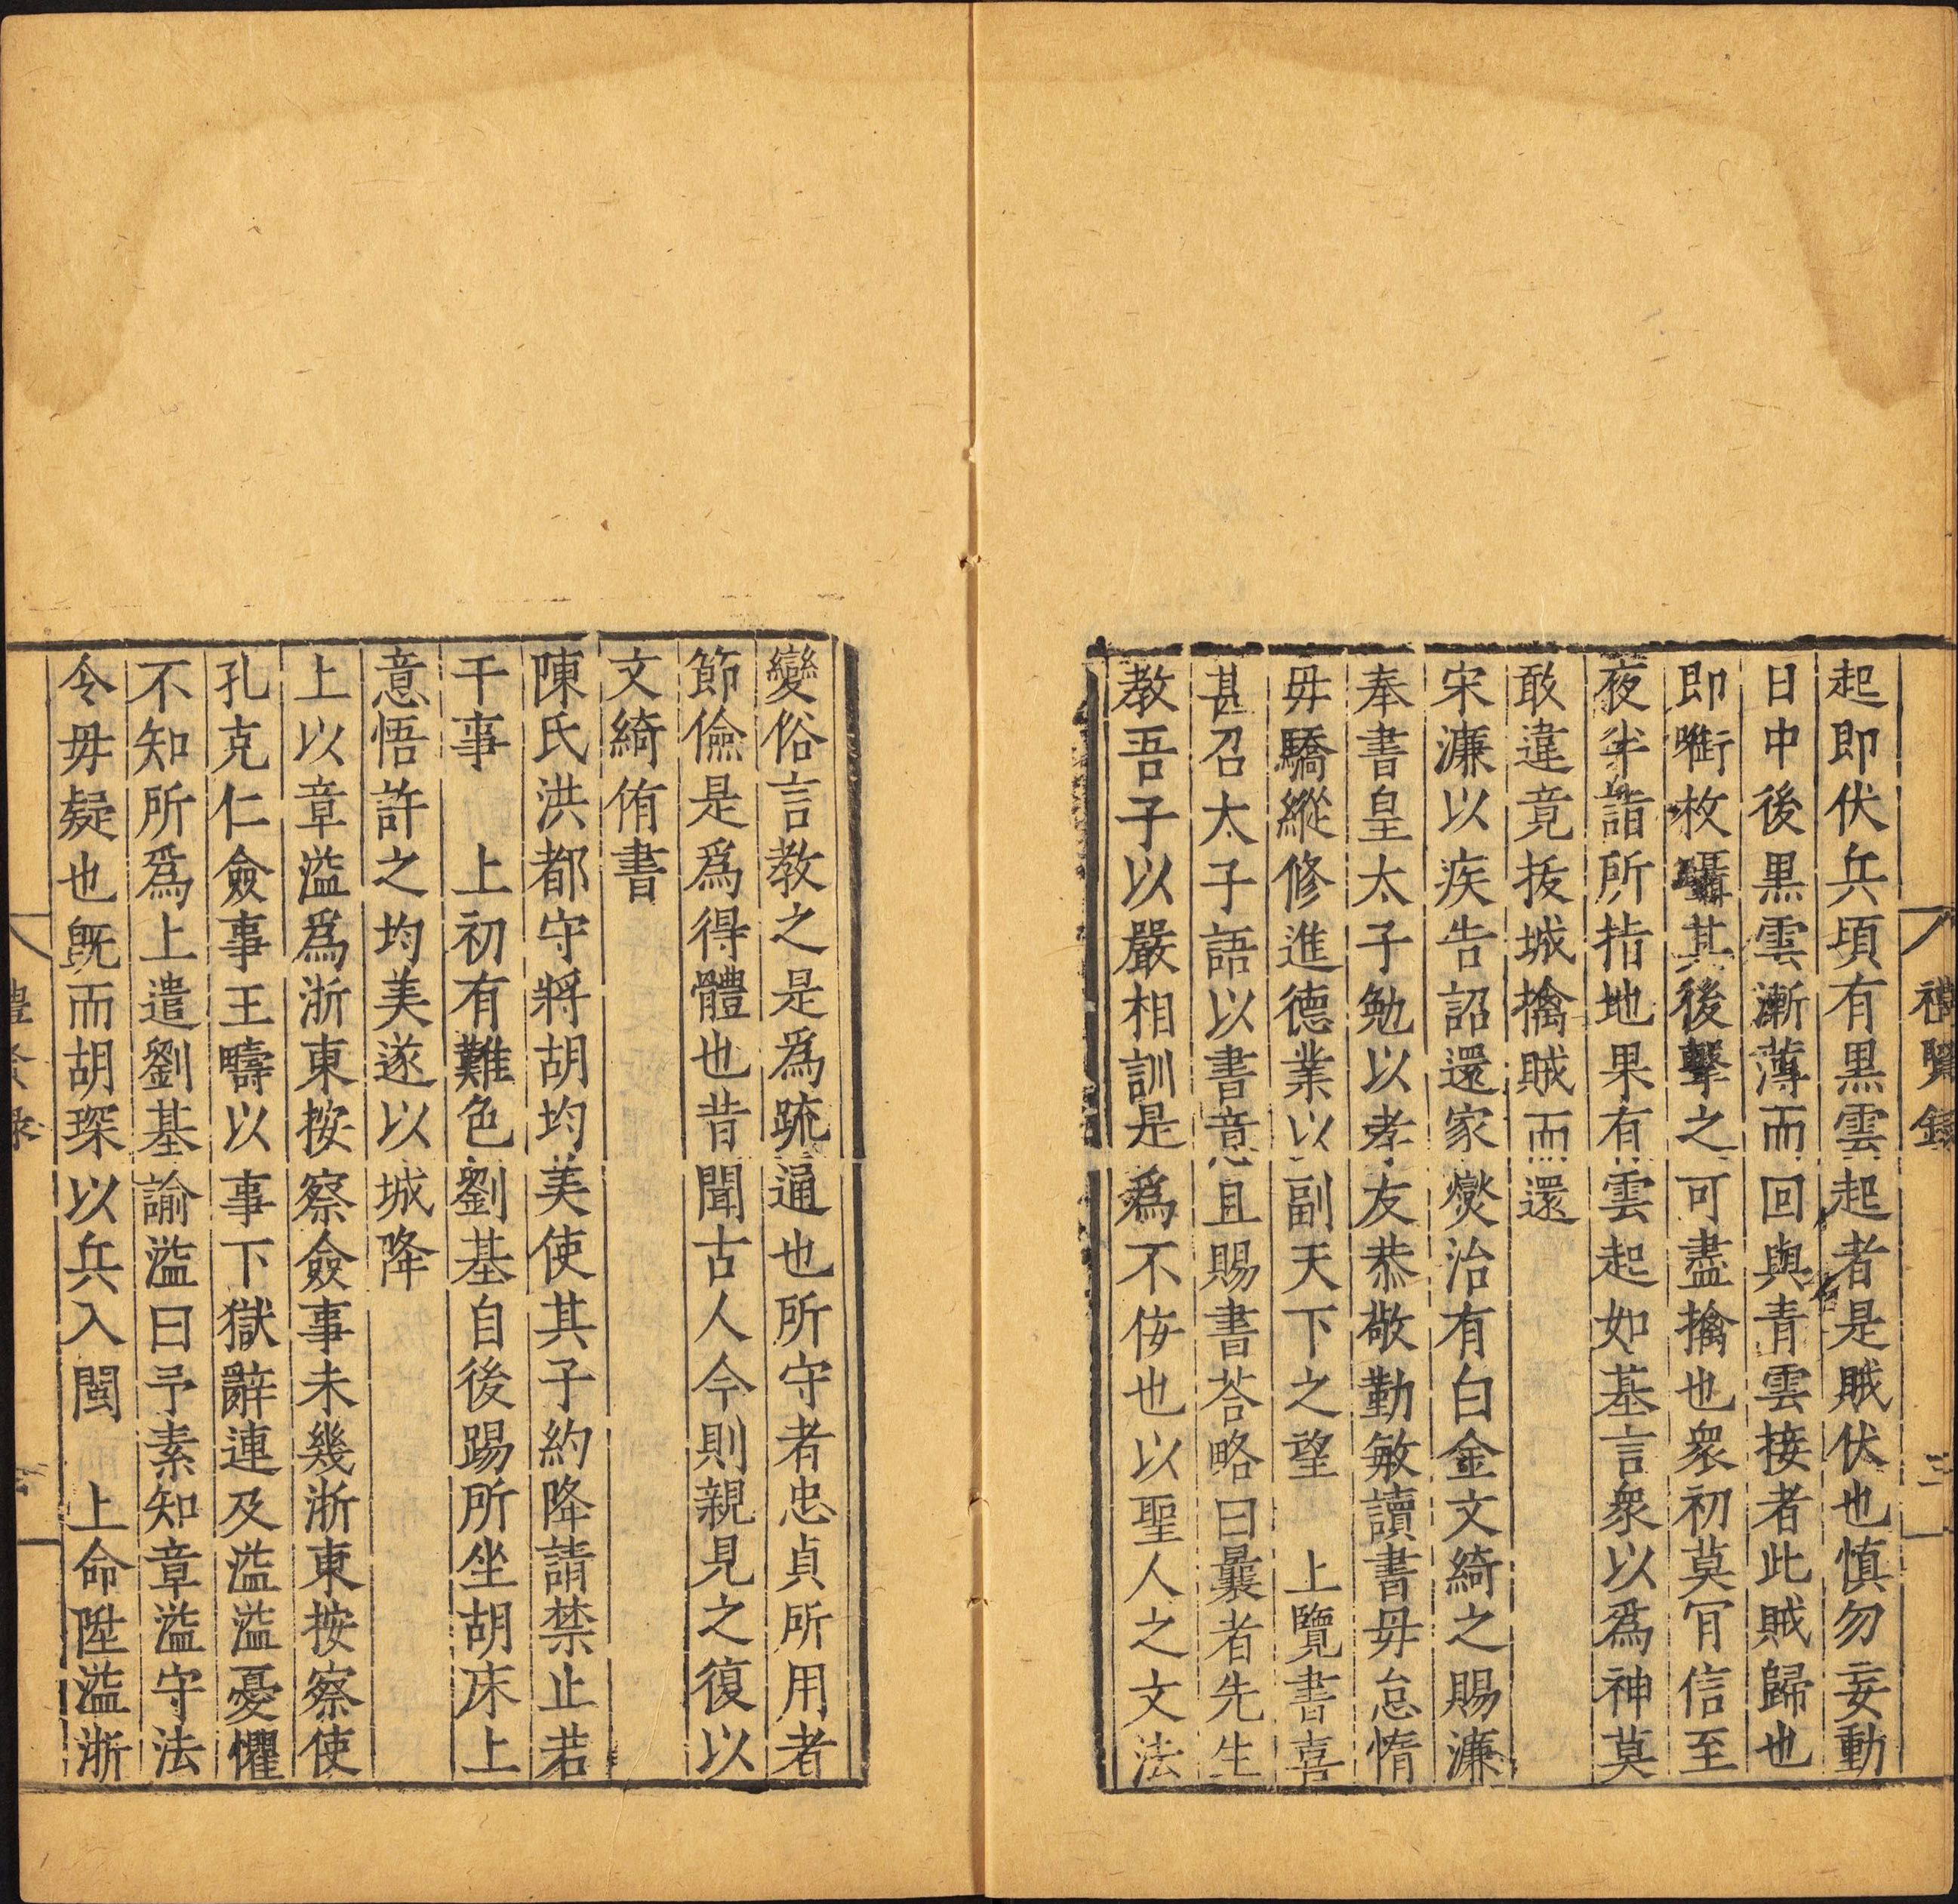 禮賢錄 三
起即伏兵頃有黒雲起者是賊伏也慎勿妄動
日中後黒雲漸薄而回與青雲接者此賊歸也
即銜枚躡其後擊之可盡擒也衆初莫肎信至
夜半詣所指地果有雲起如基言衆以爲神莫
敢違竟拔城擒賊而還
宋濂以疾告詔還家燹治有白金文綺之賜濂
奉書皇太子勉以孝友恭敬勤敏讀書毋怠惰
毋驕縱修進德業以副天下之望　上覽書喜
甚召太子語以書意且賜書荅略曰曩者先生
教吾子以嚴相訓是爲不侫也以聖人之文法
變俗言教之是爲疏通也所守者忠貞所用者
節儉是爲得體也昔聞古人今則親見之復以
文綺侑書
陳氏洪都守將胡均美使其子約降請禁止若
干事　上初有難色劉基自後踢所坐胡床上
意悟許之均美遂以城降
上以章溢爲浙東按察僉事未幾浙東按察使
孔克仁僉事王疇以事下獄辭連及溢溢憂懼
不知所爲上遣劉基諭溢曰予素知章溢守法
令毋疑也旣而胡琛以兵入閩　上命陞溢浙
禮賢錄